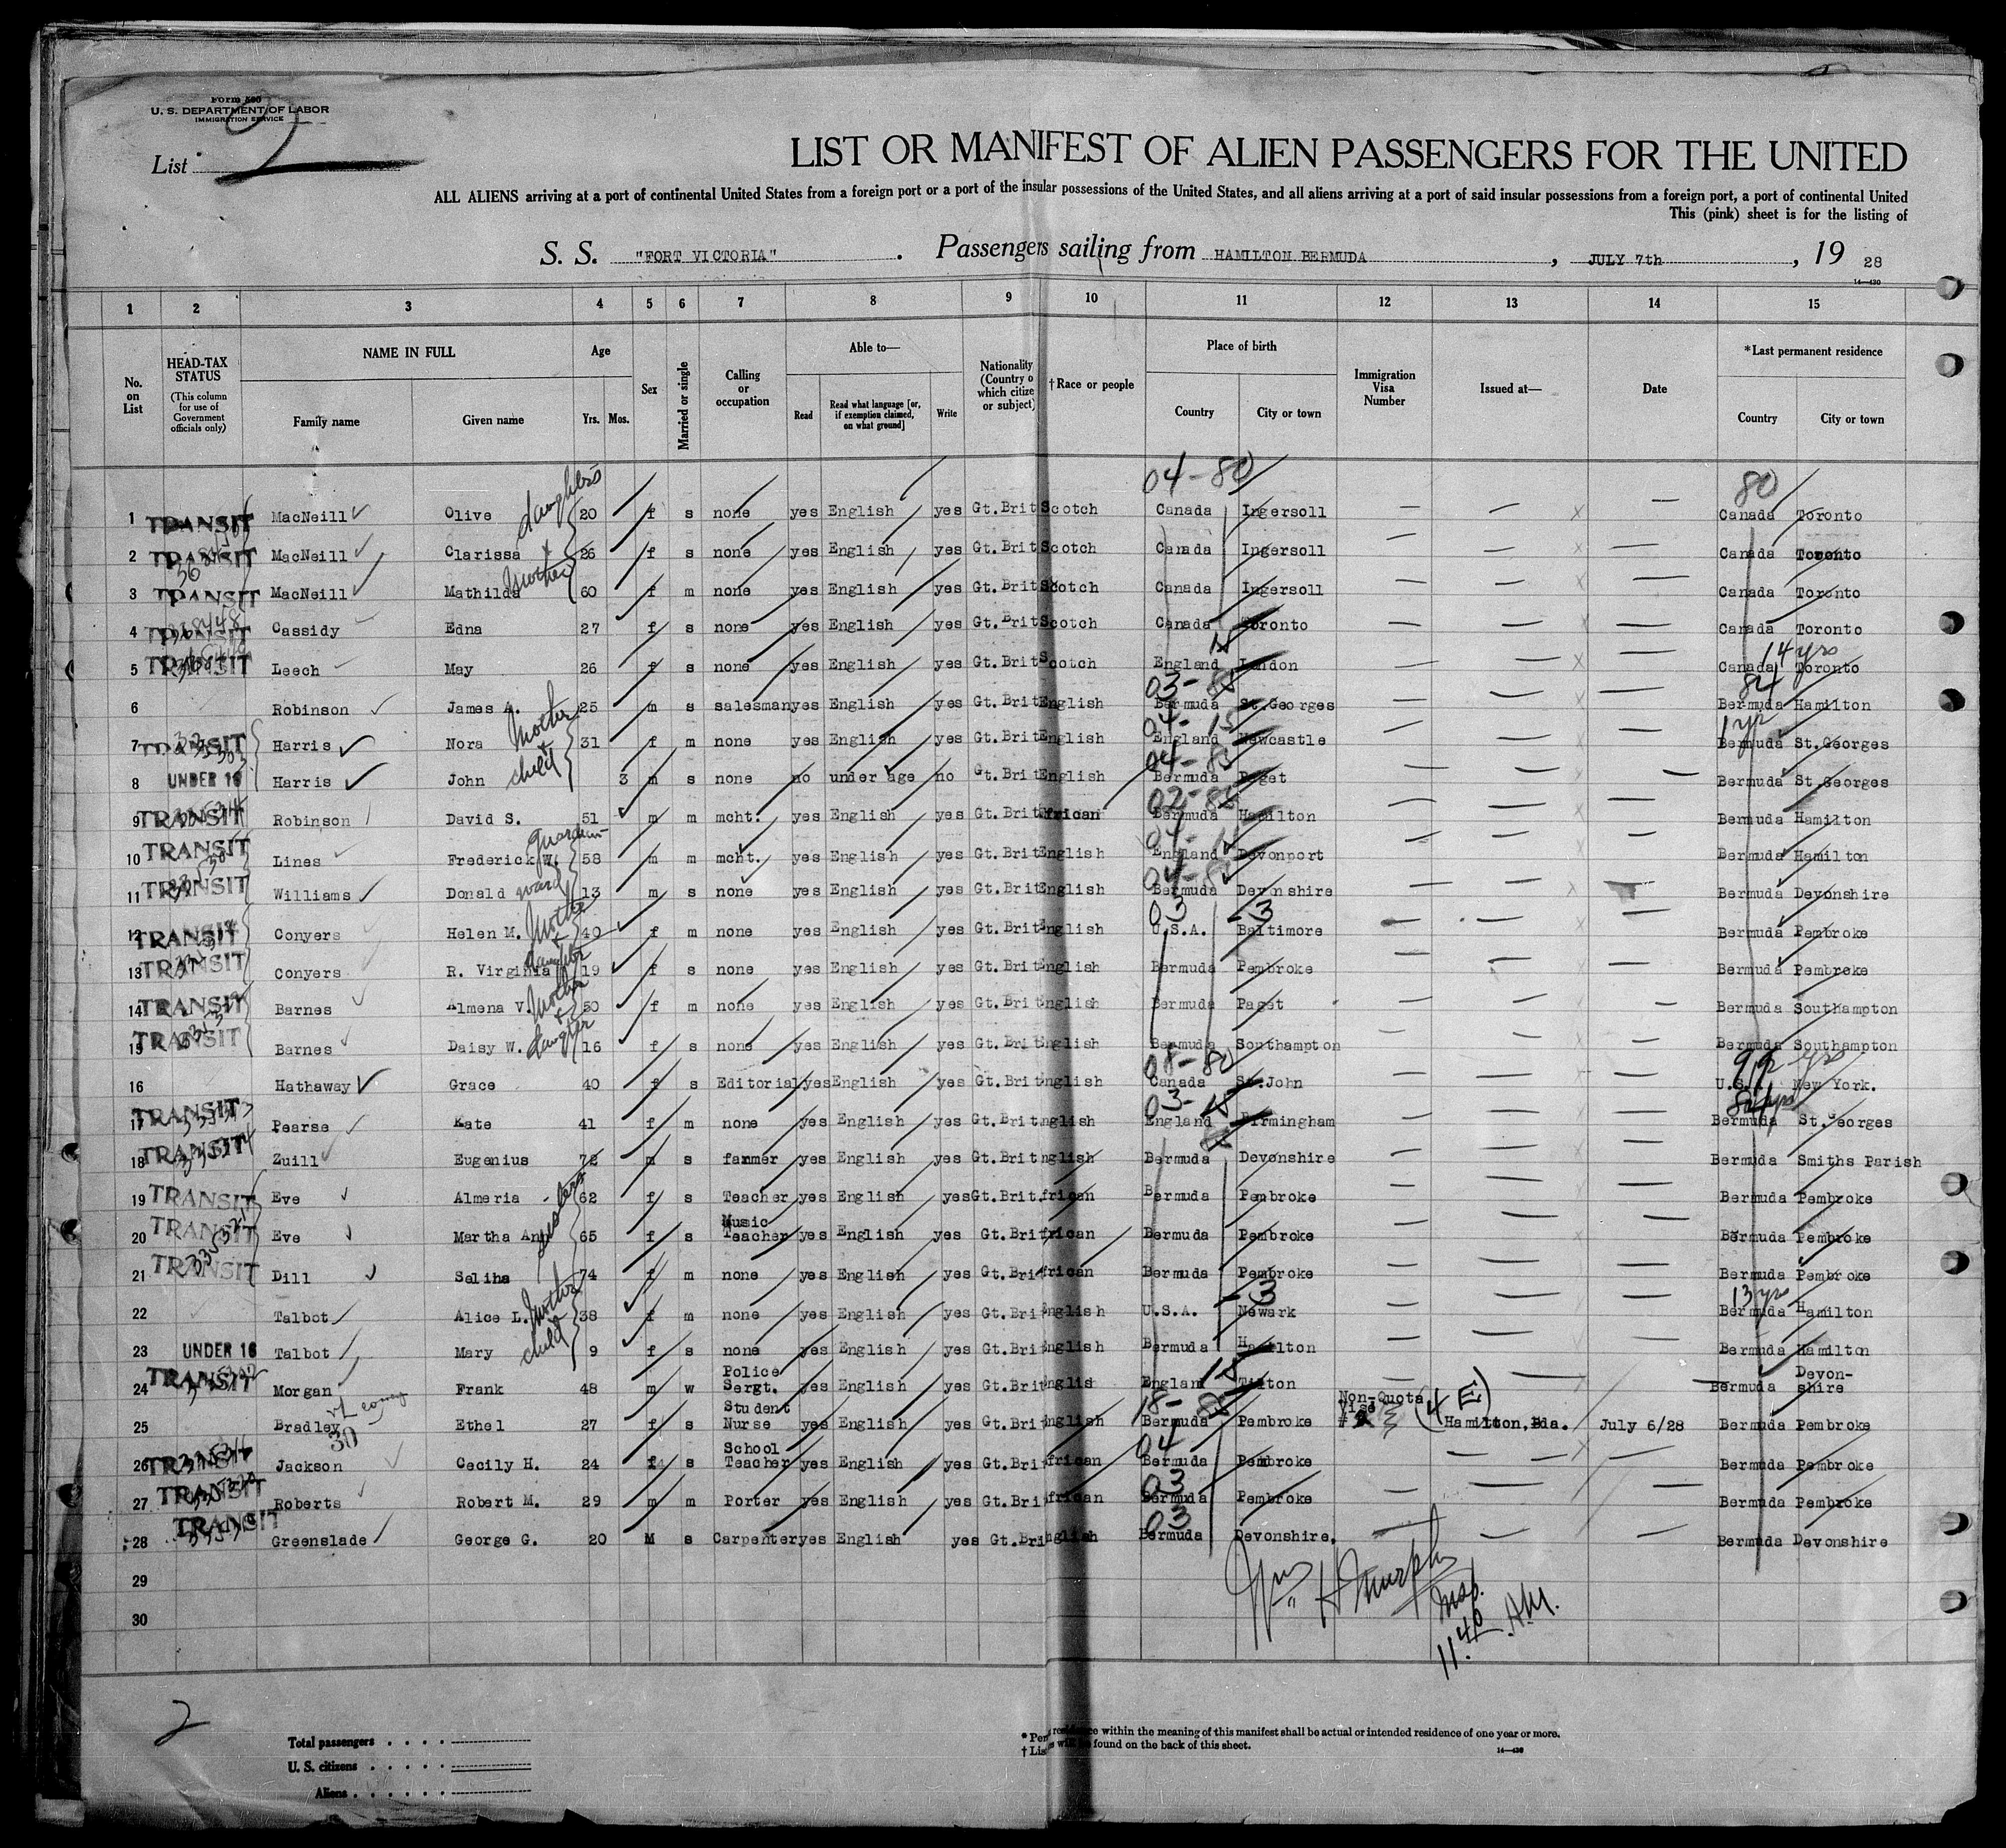 Form 500
U. S. DEPARTMENT OF LABOR
IMMIGRATION SERVICE
List 2
LIST OR MANIFEST OF ALIEN PASSENGERS FOR THE UNITED
ALL ALIENS arriving at a port of continental United States from a foreign port or a port of the insular possessions of the United States, and all aliens arriving at a port of said insular possessions from a foreign port, a port of continental United
This (pink) sheet is for the listing of
S. S. "FORT VICTORIA" . Passengers sailing from HAMILTON BERMUDA , JULY 7th , 19 28
14—430
1 2 3 4 5 6 7 8 9 10 11 12 13 14 15
No. on List
HEAD-TAX STATUS
(This column for use of Government officials only)
NAME IN FULL
Family name Given name
Age
Yrs. Mos.
Sex
Married or single
Calling or occupation
Able to—
Read
Read what language [or, if exemption claimed, on what ground]
Write
Nationality (Country o which citize or subject)
† Race or people
Place of birth
Country City or town
Immigration Visa Number
Issued at—
Date
*Last permanent residence
Country City or town
04-80 80
1 TRANSIT MacNeill Olive daughters 20 f s none yes English yes Gt.Brit Scotch Canada Ingersoll — — — Canada Toronto
2 TRANSIT MacNeill Clarissa & 26 f s none yes English yes Gt.Brit Scotch Canada Ingersoll — — — Canada Toronto
3 TRANSIT MacNeill Mathilda mother 60 f m none yes English yes Gt.Brit Scotch Canada Ingersoll — — — Canada Toronto
4 TRANSIT Cassidy Edna 27 f s none yes English yes Gt.Brit Scotch Canada Toronto — — — Canada Toronto
14 yrs
5 TRANSIT Leech May 26 f s none yes English yes Gt.Brit Scotch England London — — — Canada Toronto
03- 84
6 Robinson James A. 25 m s salesman yes English yes Gt.Brit English Bermuda St.Georges — — — Bermuda Hamilton
04- 15 1 yr
7 TRANSIT Harris Nora Mother & 31 f m none yes English yes Gt.Brit English England Newcastle — — — Bermuda St.Georges
04-
8 UNDER 16 Harris John child 3 m s none no under age no Gt.Brit English Bermuda Paget — — — Bermuda St.Georges
02-
9 TRANSIT Robinson David S. 51 m m mcht. yes English yes Gt.Brit African Bermuda Hamilton — — — Bermuda Hamilton
04-
10 TRANSIT Lines Frederick W. guardian 58 m m mcht. yes English yes Gt.Brit English England Devonport — — — Bermuda Hamilton
04-
11 TRANSIT Williams Donald ward 13 m s none yes English yes Gt.Brit English Bermuda Devonshire — — — Bermuda Devonshire
03 - 3
12 TRANSIT Conyers Helen M. Mother & 40 f m none yes English yes Gt.Brit English U.S.A. Baltimore — — — Bermuda Pembroke
13 TRANSIT Conyers R. Virginia daughter 19 f s none yes English yes Gt.Brit English Bermuda Pembroke — — — Bermuda Pembroke
14 TRANSIT Barnes Almena V. Mother & 50 f m none yes English yes Gt.Brit nglish Bermuda Paget — — — Bermuda Southampton
15 TRANSIT Barnes Daisy W. daugter 16 f s none yes English yes Gt.Brit nglish Bermuda Southampton — — — Bermuda Southampton
08-80
16 Hathaway Grace 40 f s Editorial yes English yes Gt.Brit nglish Canada St.John — — — U.S.A. New York.
03-
17 TRANSIT Pearse Kate 41 f m none yes English yes Gt.Brit nglish England Birmingham — — — Bermuda St.Georges
18 TRANSIT Zuill Eugenius 72 m s farmer yes English yes Gt.Brit nglish Bermuda Devonshire — — — Bermuda Smiths Parish
19 TRANSIT Eve Almeria sisters 62 f s Teacher yes English yes Gt.Brit. frican Bermuda Pembroke — — — Bermuda Pembroke
20 TRANSIT Eve Martha Ann 65 f s Music Teacher yes English yes Gt.Bri frican Bermuda Pembroke — — — Bermuda Pembroke
21 TRANSIT Dill Seliha 74 f m none yes English yes Gt.Bri frican Bermuda Pembroke — — — Bermuda Pembroke
- 3 13 yrs
22 Talbot Alice L. Mother & 38 f m none yes English yes Gt.Bri nglish U.S.A. Newark — — — Bermuda Hamilton
23 UNDER 16 Talbot Mary child 9 f s none yes English yes Gt.Bri nglish Bermuda Hamilton — — — Bermuda Hamilton
24 TRANSIT Morgan Frank 48 m w Police Sergt. yes English yes Gt.Bri nglis England Tifton — — — Bermuda Devon-shire
25 Bradley 30 Ethel 27 f s Student Nurse yes English yes Gt.Bri nglish 18- Bermuda Pembroke Non-Quota Vise # 2 (4 E) Hamilton, Bda. July 6/28 Bermuda Pembroke
04
26 TRANSIT Jackson Cecily H. 24 f s School Teacher yes English yes Gt.Bri frican Bermuda Pembroke — — — Bermuda Pembroke
03
27 TRANSIT Roberts Robert M. 29 m m Porter yes English yes Gt.Bri frican Bermuda Pembroke — — — Bermuda Pembroke
03
28 TRANSIT Greenslade George G. 20 M s Carpenter yes English yes Gt.Bri nglish Bermuda Devonshire. — — — Bermuda Devonshire
29
30
Wm H Murphy
Insp.
11.40 A.M.
2
Total passengers . . . .
U. S. citizens . . . . .
Aliens . . . . . .
* Per residence within the meaning of this manifest shall be actual or intended residence of one year or more.
† Lis will be found on the back of this sheet.
14—430